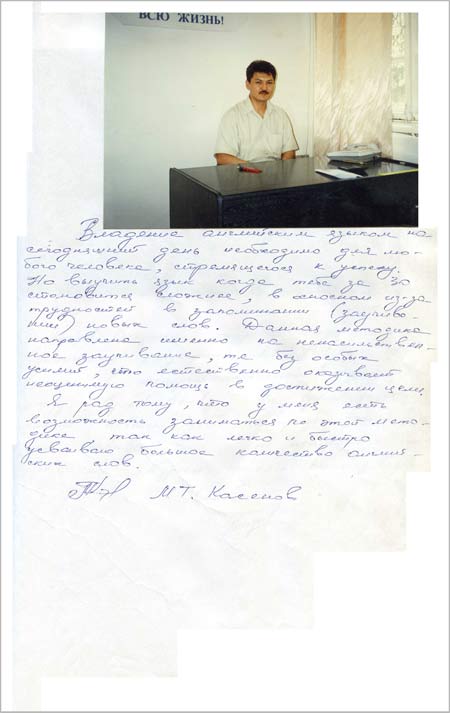 ВСЮ ЖИЗНЬ!
Владение английским языком на
сегодняшний день необходимо для лю-
бого человека, стремящегося к успеху.
Но выучить язык когда тебе за 30
становится сложнее, в основном из-за
трудностей в запоминании (заучива-
нии) новых слов. Данная методика
направлена именно на ненасильствен-
ное заучивание, те без особых
усилий, что естественно оказывает
неоценимую помощь в достижении цели.
Я рад тому, что у меня есть
возможность заниматься по этой мето-
дике так как легко и быстро
усваиваю большое количество англий-
ских слов.
М.Т. Касенов